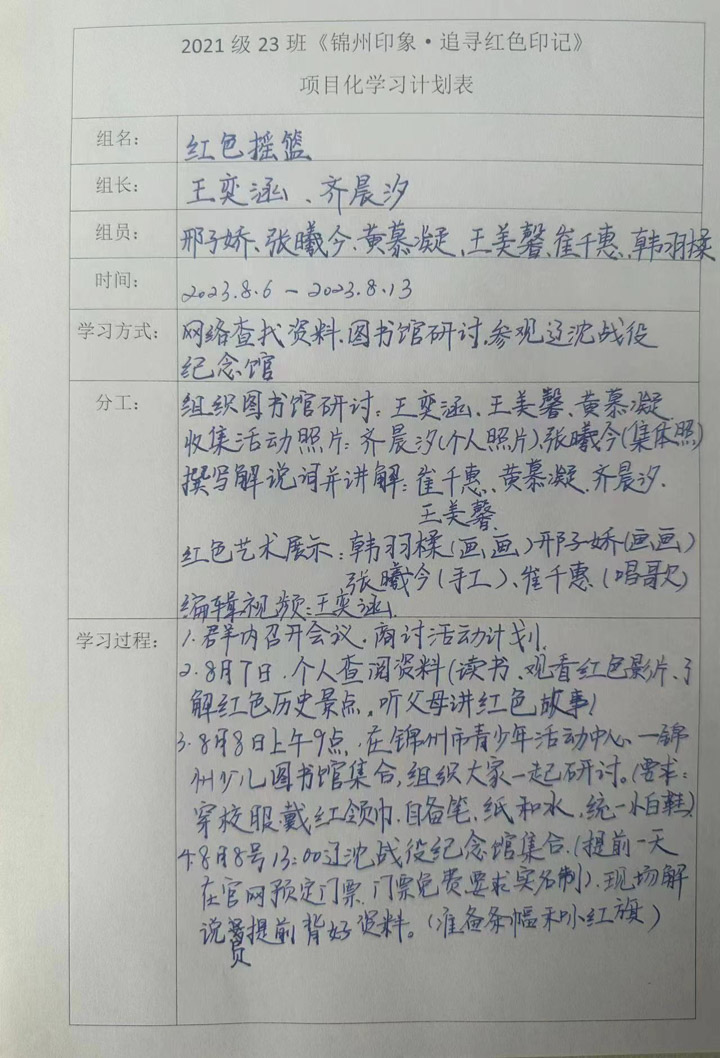 2021 级 23 班《锦州印象·追寻红色印记》
项目化学习计划表
组名： 红色摇篮
组长： 王奕涵、齐晨汐
组员： 邢子娇、张曦今、黄慕凝、王美馨、崔千惠、韩羽楺
时间： 2023.8.6 — 2023.8.13
学习方式： 网络查找资料、图书馆研讨、参观辽沈战役
纪念馆
分工： 组织图书馆研讨：王奕涵、王美馨、黄慕凝
收集活动照片：齐晨汐(个人照片)、张曦今(集体照)
撰写解说词并讲解：崔千惠、黄慕凝、齐晨汐.
王美馨
红色艺术展示：韩羽楺(画画)邢子娇(画画)
张曦今(手工)、崔千惠(唱歌)
编辑视频：王奕涵
学习过程： 1.群内召开会议，商讨活动计划.
2.8月7日，个人查阅资料(读书、观看红色影片、了
解红色历史景点，听父母讲红色故事)
3.8月8日上午9点，在锦州市青少年活动中心—锦
州少儿图书馆集合，组织大家一起研讨。(要求：
穿校服戴红领巾，自备笔，纸和水，统一小白鞋)
4.8月8号13:00辽沈战役纪念馆集合.(提前一天
在官网预定门票，门票免费，要求实名制)，现场解
说员提前背好资料。(准备条幅和小红旗)